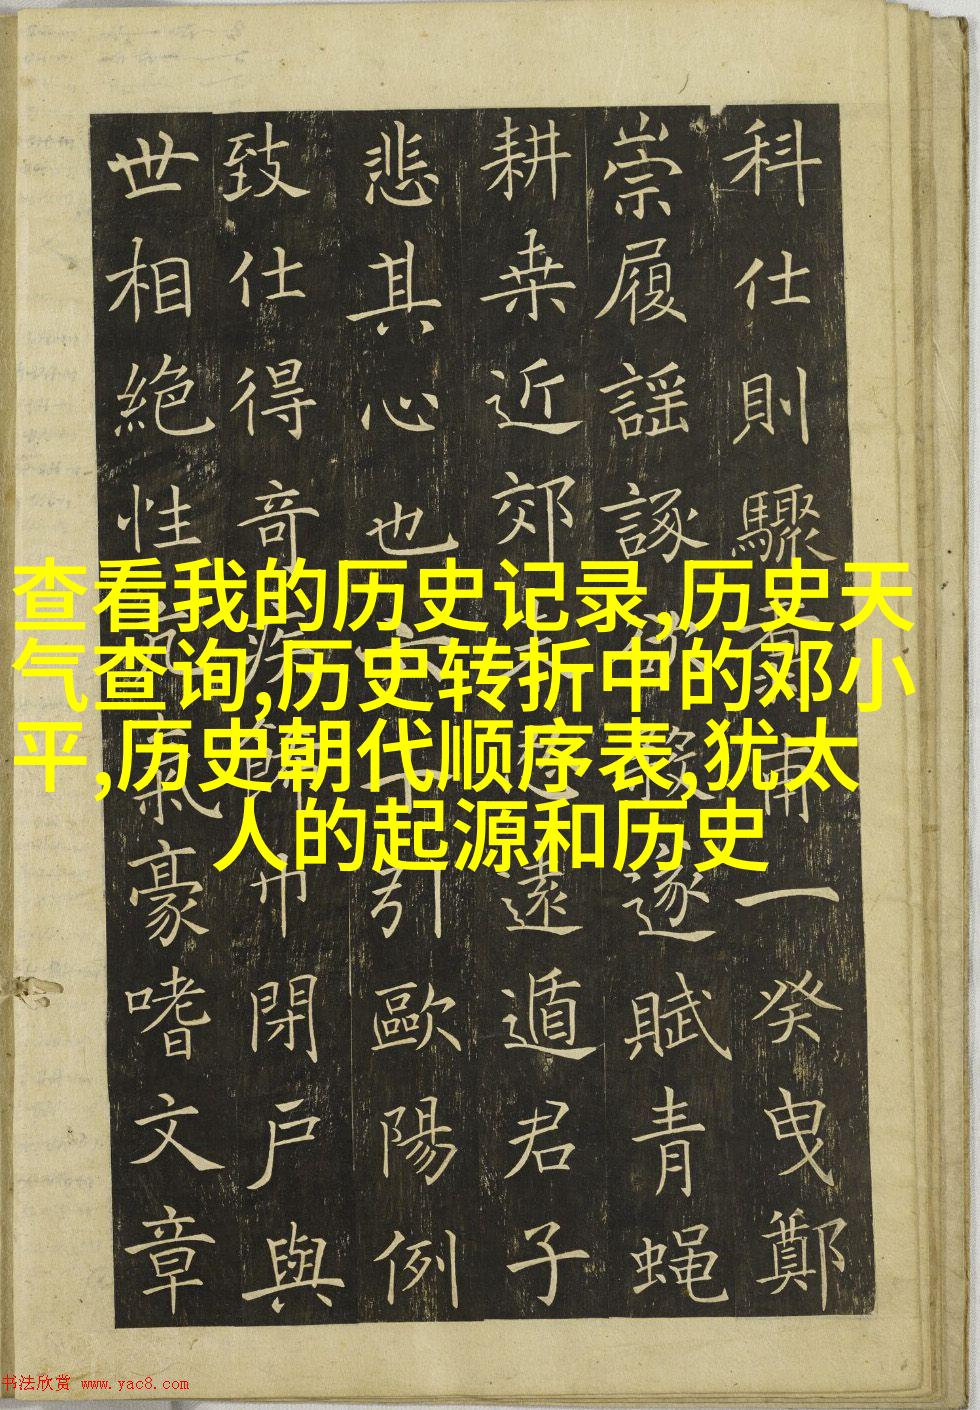 科仕則驟甫一癸曳鄭
崇履謡諑遂賦青蝿
耕桒近郊遠遁君子
悲其心也六引歐陽例
致仕得奇疾閉戶與
世相絶性氣豪嗜文章
查看我的历史记录,历史天
气查询,历史转折中的邓小
平,历史朝代顺序表,犹太
人的起源和历史
书法欣赏 www.yac8.com